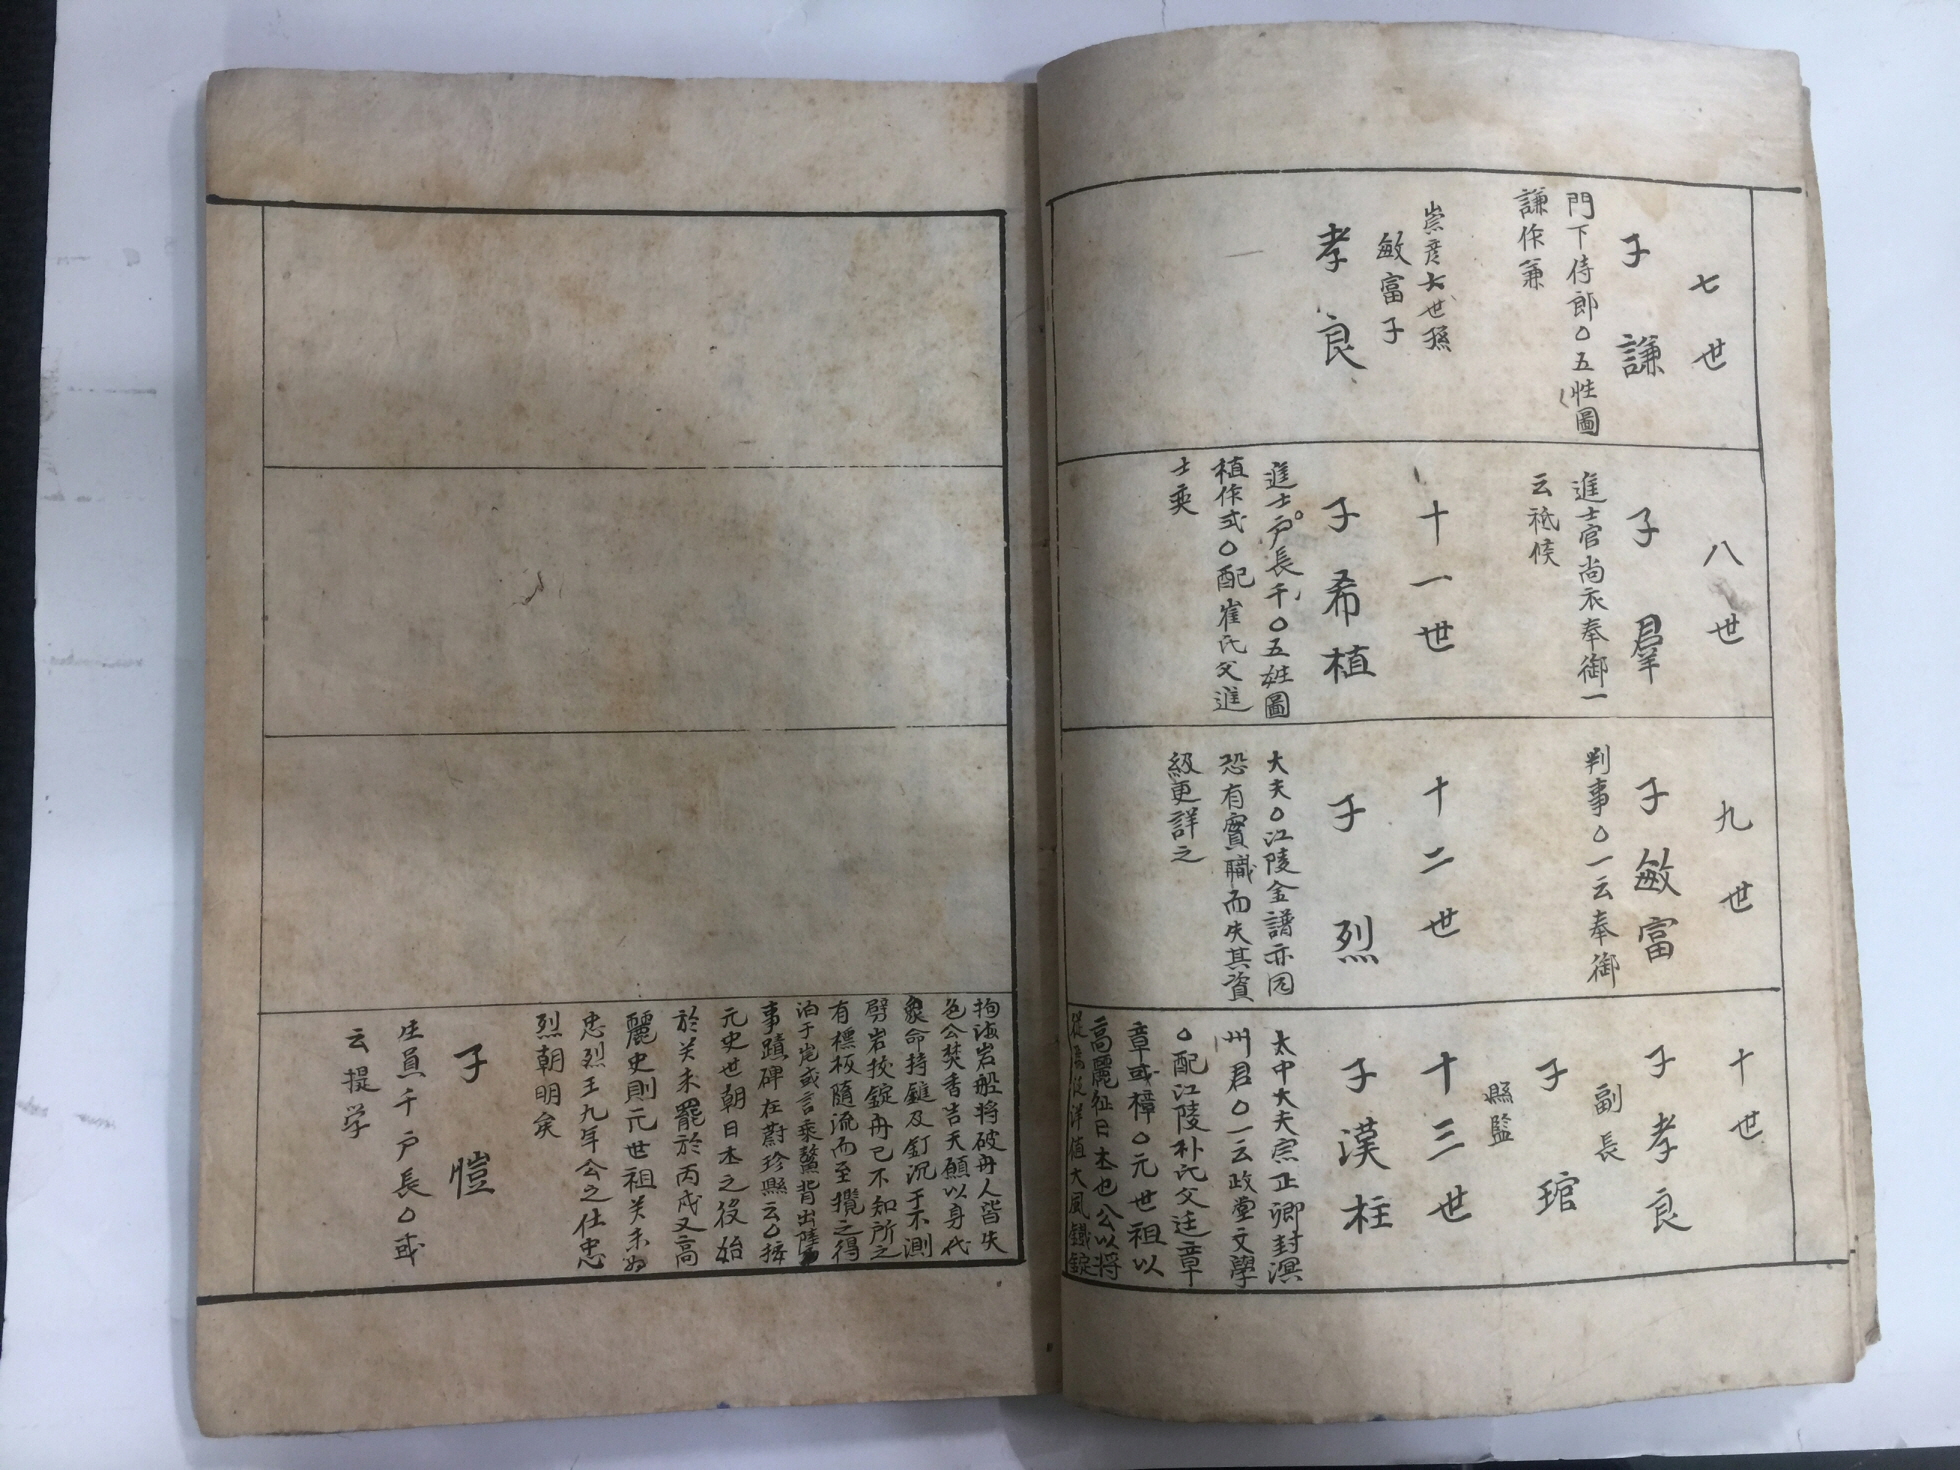 七世
子 謙
門下侍郎○五性圖
謙作兼
崇彦六世孫
敏富子
孝良
八世
子 羣
進士官尚衣奉御一
云祗候
十一世
子希植
進士戶長千○五姓圖
植作或○配崔氏父進
士奕
九世
子敏富
判事○一云奉御
十二世
子 烈
大夫○江陵金譜亦同
恐有實職而失其資
級更詳之
十世
子孝良
副長
子 琯
縣監
十三世
子漢柱
太中大夫宗正卿封溟
州君○一云政堂文學
○配江陵朴氏父廷章
章或樟○元世祖以
高麗征日本也公以將
從焉從洋值大風鐵錠
拘海岩船將破舟人皆失
色公焚香告天願以身代
衆命持鎚及釘沉于不測
劈岩拔錠舟已不知所之
有標板隨流而至攬之得
泊于岸或言乘鰲背出陸
事蹟碑在蔚珍縣云○按
元史世朝日本之役始
於癸未罷於丙戌又高
麗史則元世祖癸未
忠烈王九年公之仕忠
烈朝明矣
子 愷
生員千戶長○或
云提学